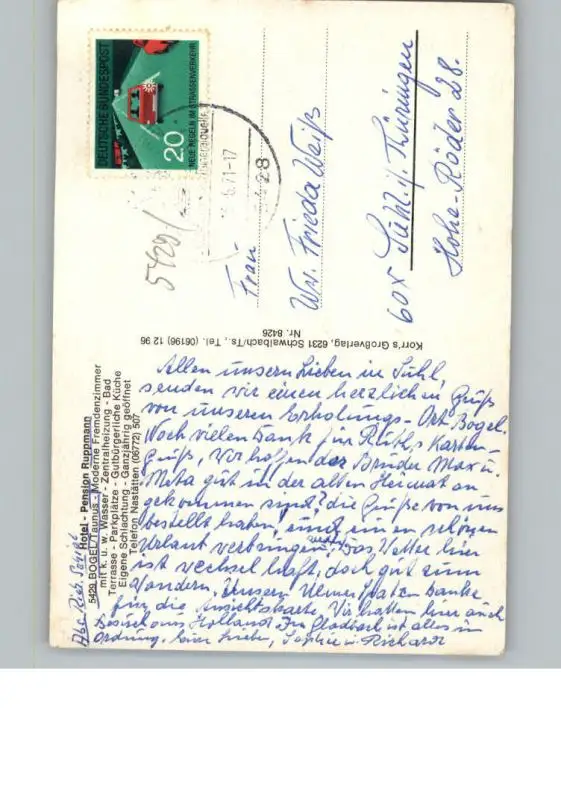 DEUTSCHE BUNDESPOST
NEUE REGELN IM STRASSENVERKEHR
20
6.71-17
28
5429
Frau
Ww. Frieda Weiß
60X Suhl i/Thüringen
Hohe-Röder 28.
Korr's Großverlag, 6231 Schwalbach/Ts., Tel. (06196) 12 96
Nr. 8426
Hotel - Pension Ruppmann
5429 BOGEL/Taunus - Moderne Fremdenzimmer
mit k. u. w. Wasser - Zentralheizung - Bad
Terrasse - Parkplätze - Gutbürgerliche Küche
Eigene Schlachtung - Ganzjährig geöffnet
Telefon Nastätten (06772) 507
Abs. Rich.
Allen unsern Lieben in Suhl,
senden wir einen herzlichen Gruß
von unseren Erholungs-Ort Bogel.
Noch vielen Dank für Ruth,s Karten-
gruß, Wir hoffen das Bruder Max u.
Meta gut in der alten Heimat an
gekommen sind? die Grüße von uns
bestellt haben, und einen schönen
Urlaut verbringen. Das Wetter hier
ist wechselhaft, doch gut zum
Wandern. Unsern Ulmer Danke
für die Ansichtskarte. Wir hatten hier auch
Besuch aus Holland. In Gladbach ist alles in
Ordnung. Sophie u. Richard